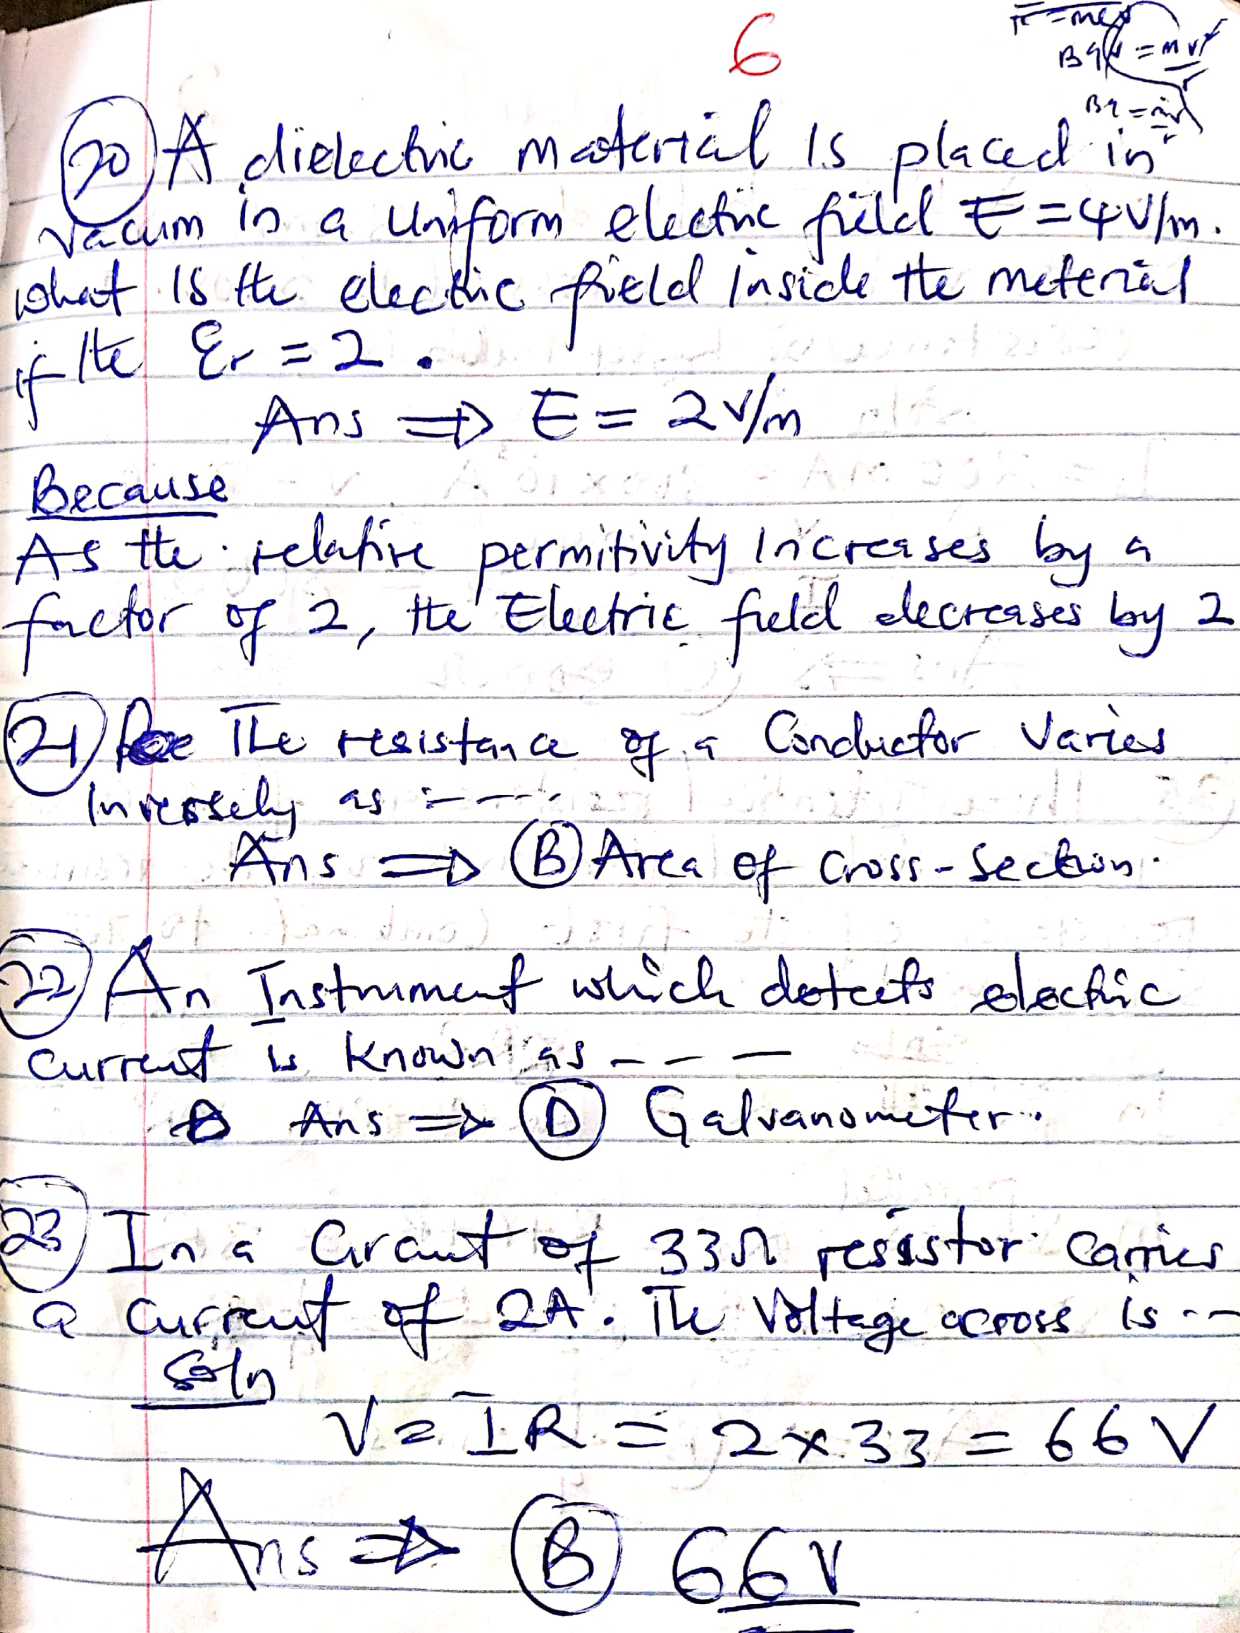 6
Bqv = mv²
20 A dielectric material is placed in
vacum in a uniform electric field E = 4V/m.
what is the electric field inside the meterial
if the Er = 2.
Ans ⇒ E = 2V/m
Because
As the relative permitivity increases by a
factor of 2, the Electric field decreases by 2
21 The resistance of a Conductor varies
Inversely as : - - - -
Ans ⇒ (B) Area of cross-section.
22 An Instrument which detects electric
current is known as - - -
Ans ⇒ (D) Galvanometer.
23 In a Circuit of 33Ω resistor carries
a current of 2A. The Voltage across is --
Soln
V = IR = 2 x 33 = 66 V
Ans ⇒ (B) 66V